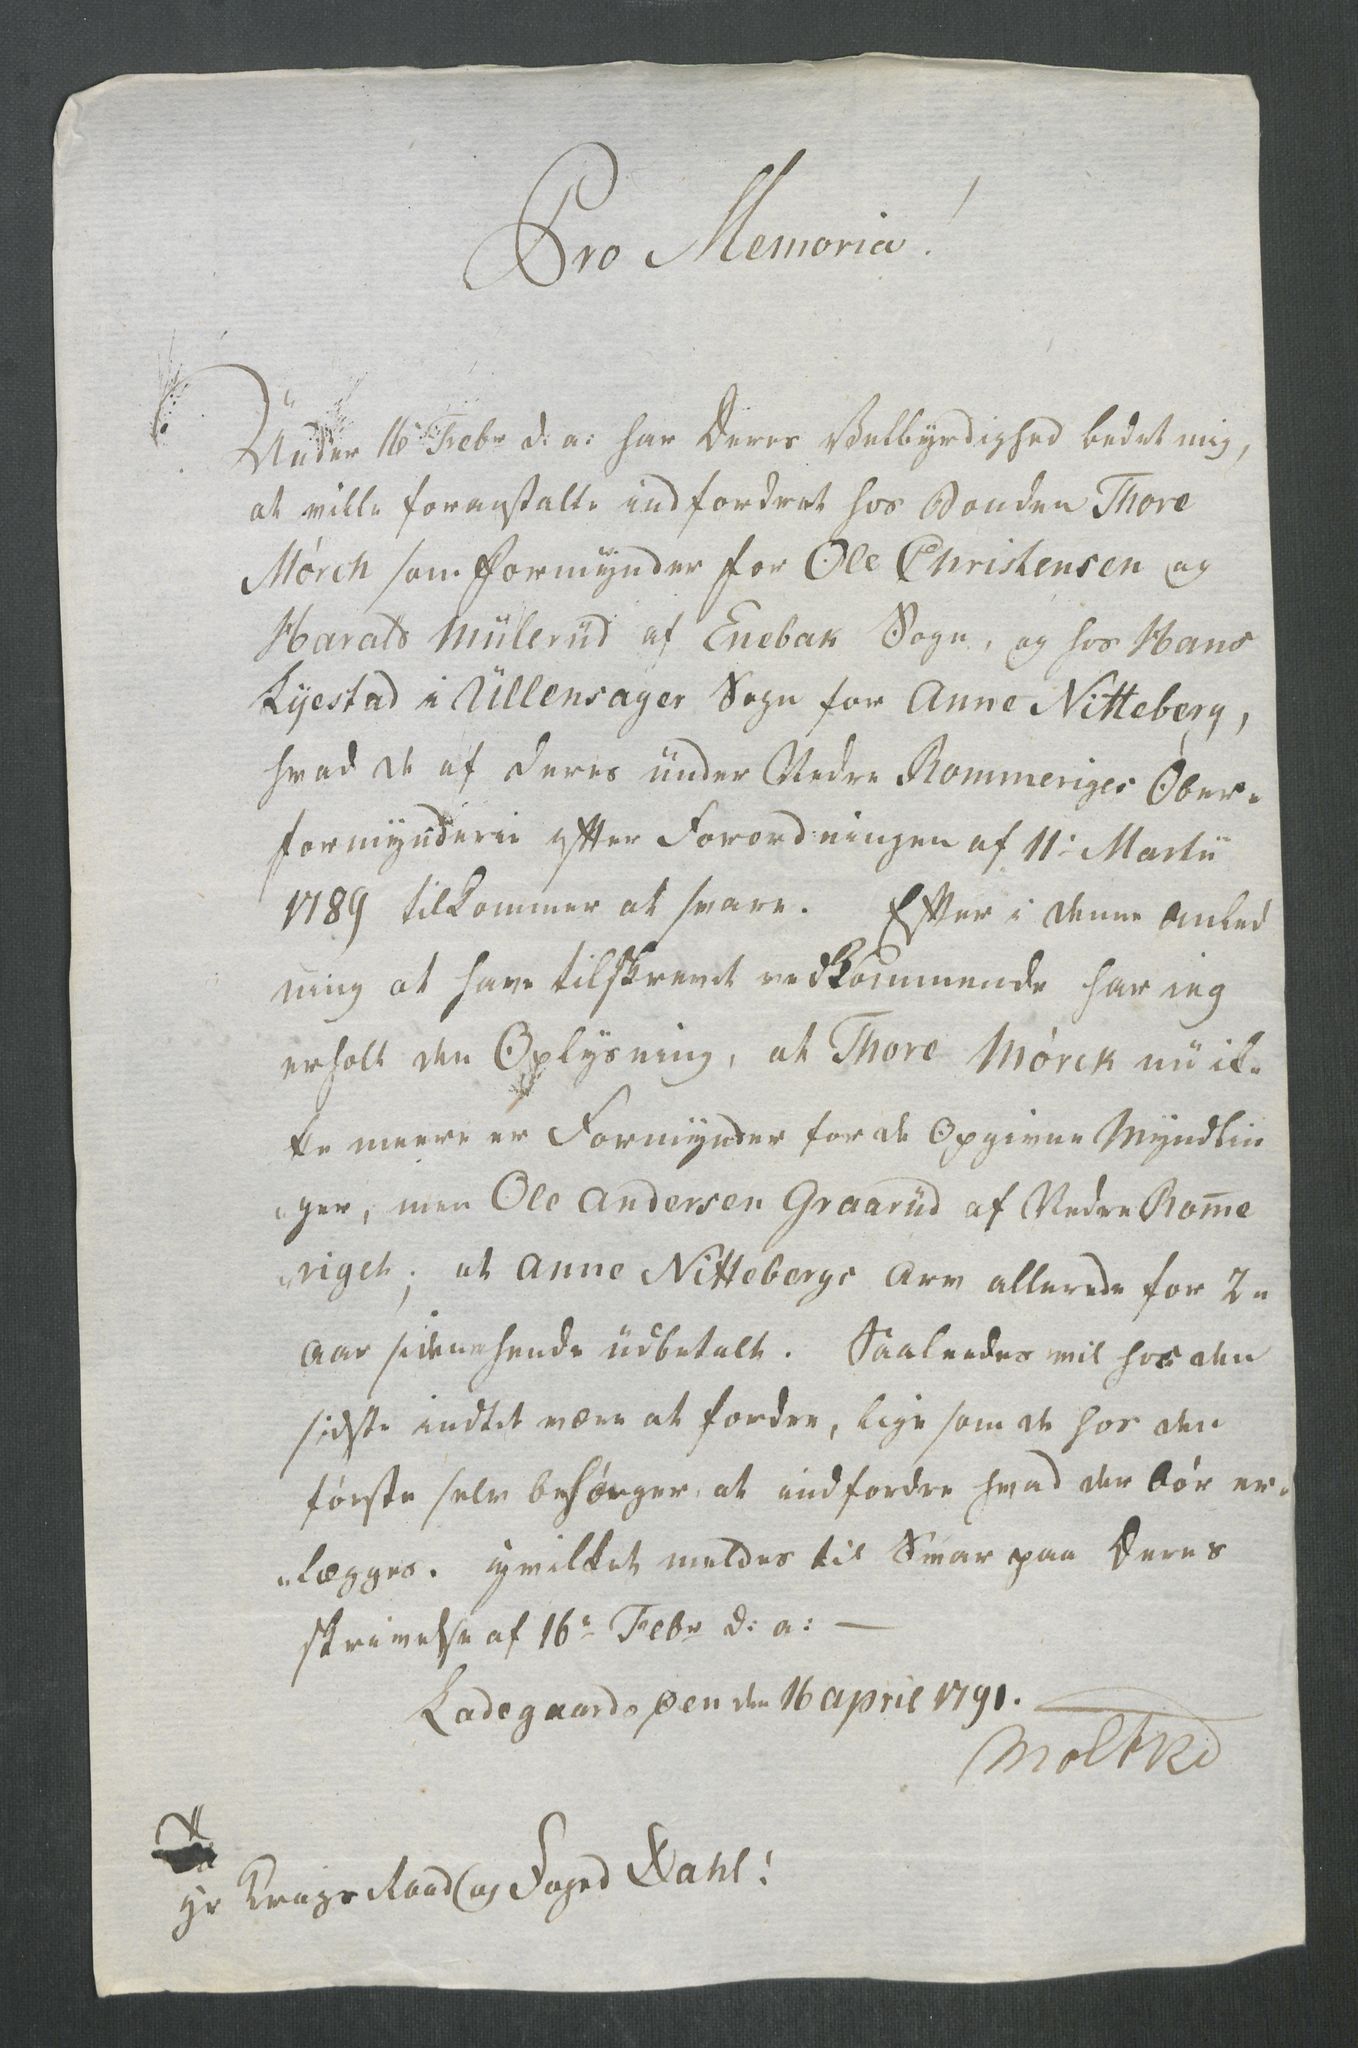 Pro Memoria!
Under 16 Febr d: a: har Deres Velbyrdighed bedet mig,
at ville foranstalte indfordret hos Bonden Thore
Mørch som Formynder for Ole Christensen og
Harald Mülerüd af Enebak Sogn, og hos Hans
Kyestad i Üllensager Sogn for Anne Nitteberg,
hvad de af deres ünder Nedre Rommeriges Ober-
formynderie efter Forordningen af 11: Martii
1789 tilkommer at svare. Efter i denne Anled
ning at have tilskrevet vedkommende har ieg
erholt den Oplysning, at Thore Mørck nü ik-
ke meere er Formynder for de Opgivne Myndlin
ger, men Ole Andersen Graarüd af Nedre Rom̅e
riget; at Anne Nittebergs Arv allerede for 2-
Aar siden hende üdbetalt. Saaleedes vil hos den
sidste indtet være at fordre, lige som de hos den
første selv besørger at indfordre hvad der bør er-
lægges. Hvilket meldes til Svar paa Deres
Skrivelse af 16- Febr d: a: —
Ladegaards øen den 16 April 1791.
Moltke
Hr Krigs Raad og Foged Dahl!